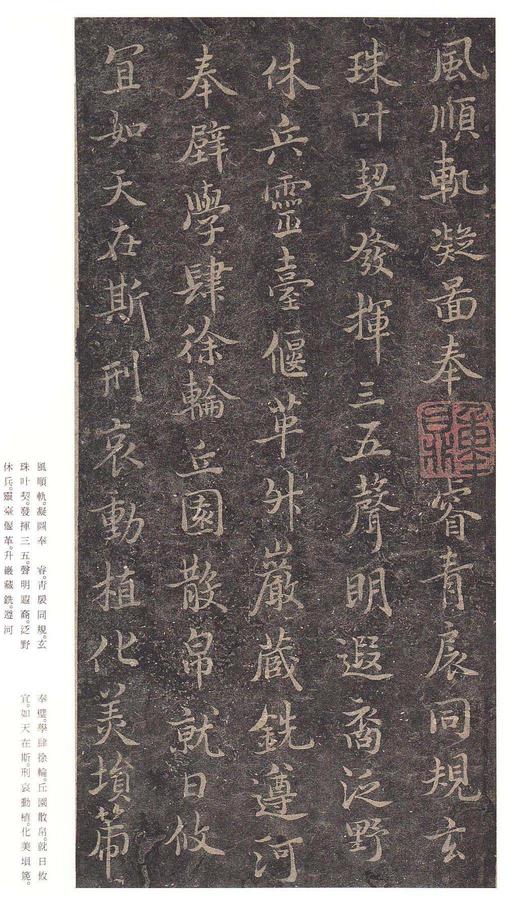 風順軌凝圖奉 睿青扆同規玄
珠叶契發揮三五聲明遐裔泛野
休兵靈臺偃革升巖藏銑遵河
奉璧學肆徐輪丘園散帛就日攸
宜如天在斯刑哀動植化美塤箎
風順軌。凝圖奉 睿。青扆同規。玄
珠叶契。發揮三五。聲明遐裔。泛野
休兵。靈臺偃革。升巖藏銑。遵河
奉璧。學肆徐輪。丘園散帛。就日攸
宜。如天在斯。刑哀動植。化美塤篪。